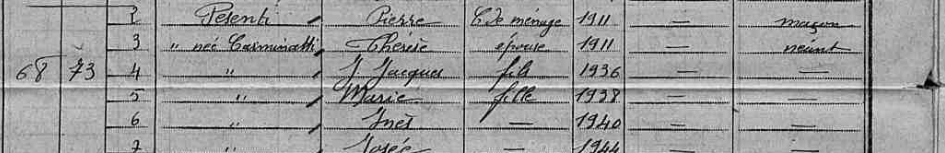 2 Pesenti Pierre C. de ménage 1911 — maçon
3 " née Carminatti Thérèse épouse 1911 — néant
68 73 4 " J Jacques fils 1936 — —
5 " Marie fille 1938 — —
6 " Inès — 1940 — —
7 " Josée — 1944 — —